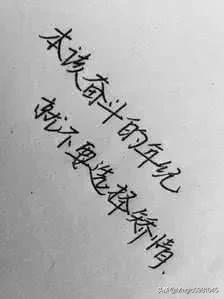 本该奋斗的年纪
就不要选择矫情.
头条@Magic0981045